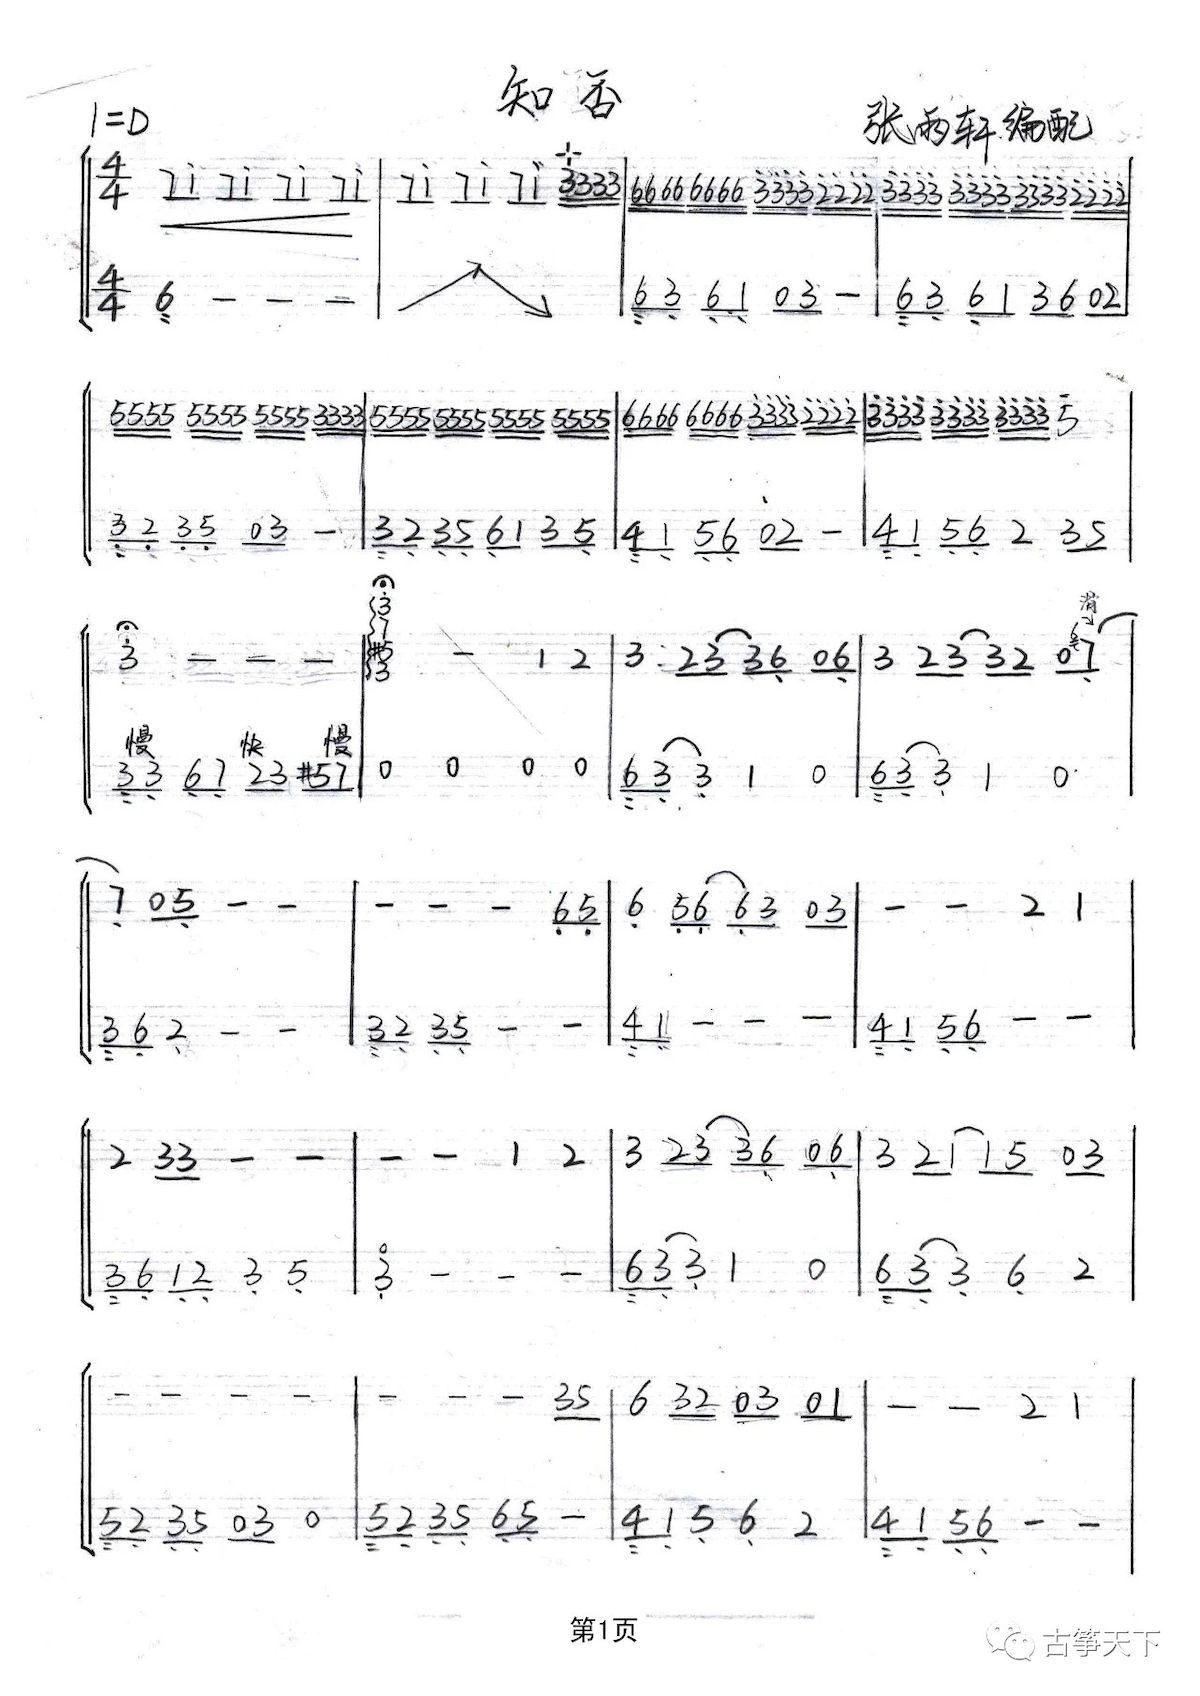 知否
1=D
张雨轩编配
4/4 7i 7i 7i 7i | 7i 7i 7i 3333 | 6666 6666 3333 2222 | 3333 3333 3333 2222
4/4 6 - - - | 63 61 03 - | 63 61 36 02
5555 5555 5555 3333 | 5555 5555 5555 5555 | 6666 6666 3333 2222 | 3333 3333 3333 5
32 35 03 - | 32 35 61 35 | 41 56 02 - | 41 56 2 35
滑
3 - - - | 3 7 #5 3 - 1 2 | 3 23 36 06 | 3 23 32 07
慢 快 慢
33 67 23 #57 | 0 0 0 0 | 63 3 1 0 | 63 3 1 0
7 05 - - | - - - 65 | 6 56 63 03 | - - 2 1
36 2 - - | 32 35 - - | 41 - - - | 41 56 - -
2 33 - - | - - 1 2 | 3 23 36 06 | 3 21 15 03
36 12 3 5 | 3 - - - | 63 3 1 0 | 63 3 6 2
- - - - | - - - 35 | 6 32 03 01 | - - 2 1
52 35 03 0 | 52 35 65 - | 41 5 6 2 | 41 56 - -
第1页
古筝天下